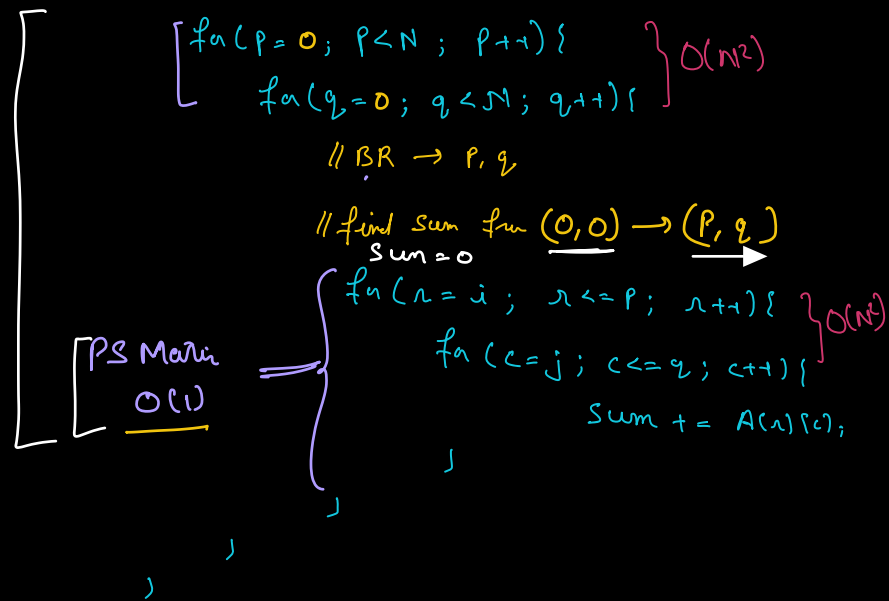 for(p=0; p<N; p++){
O(N²)
for(q=0; q<N; q++){
// BR → p, q
// find sum from (0,0) → (p, q)
sum=0
for(r=i; r<=p; r++){
O(N²)
for(c=j; c<=q; c++){
sum += A[r][c];
PS Matrix
O(1)
}
}
}
}